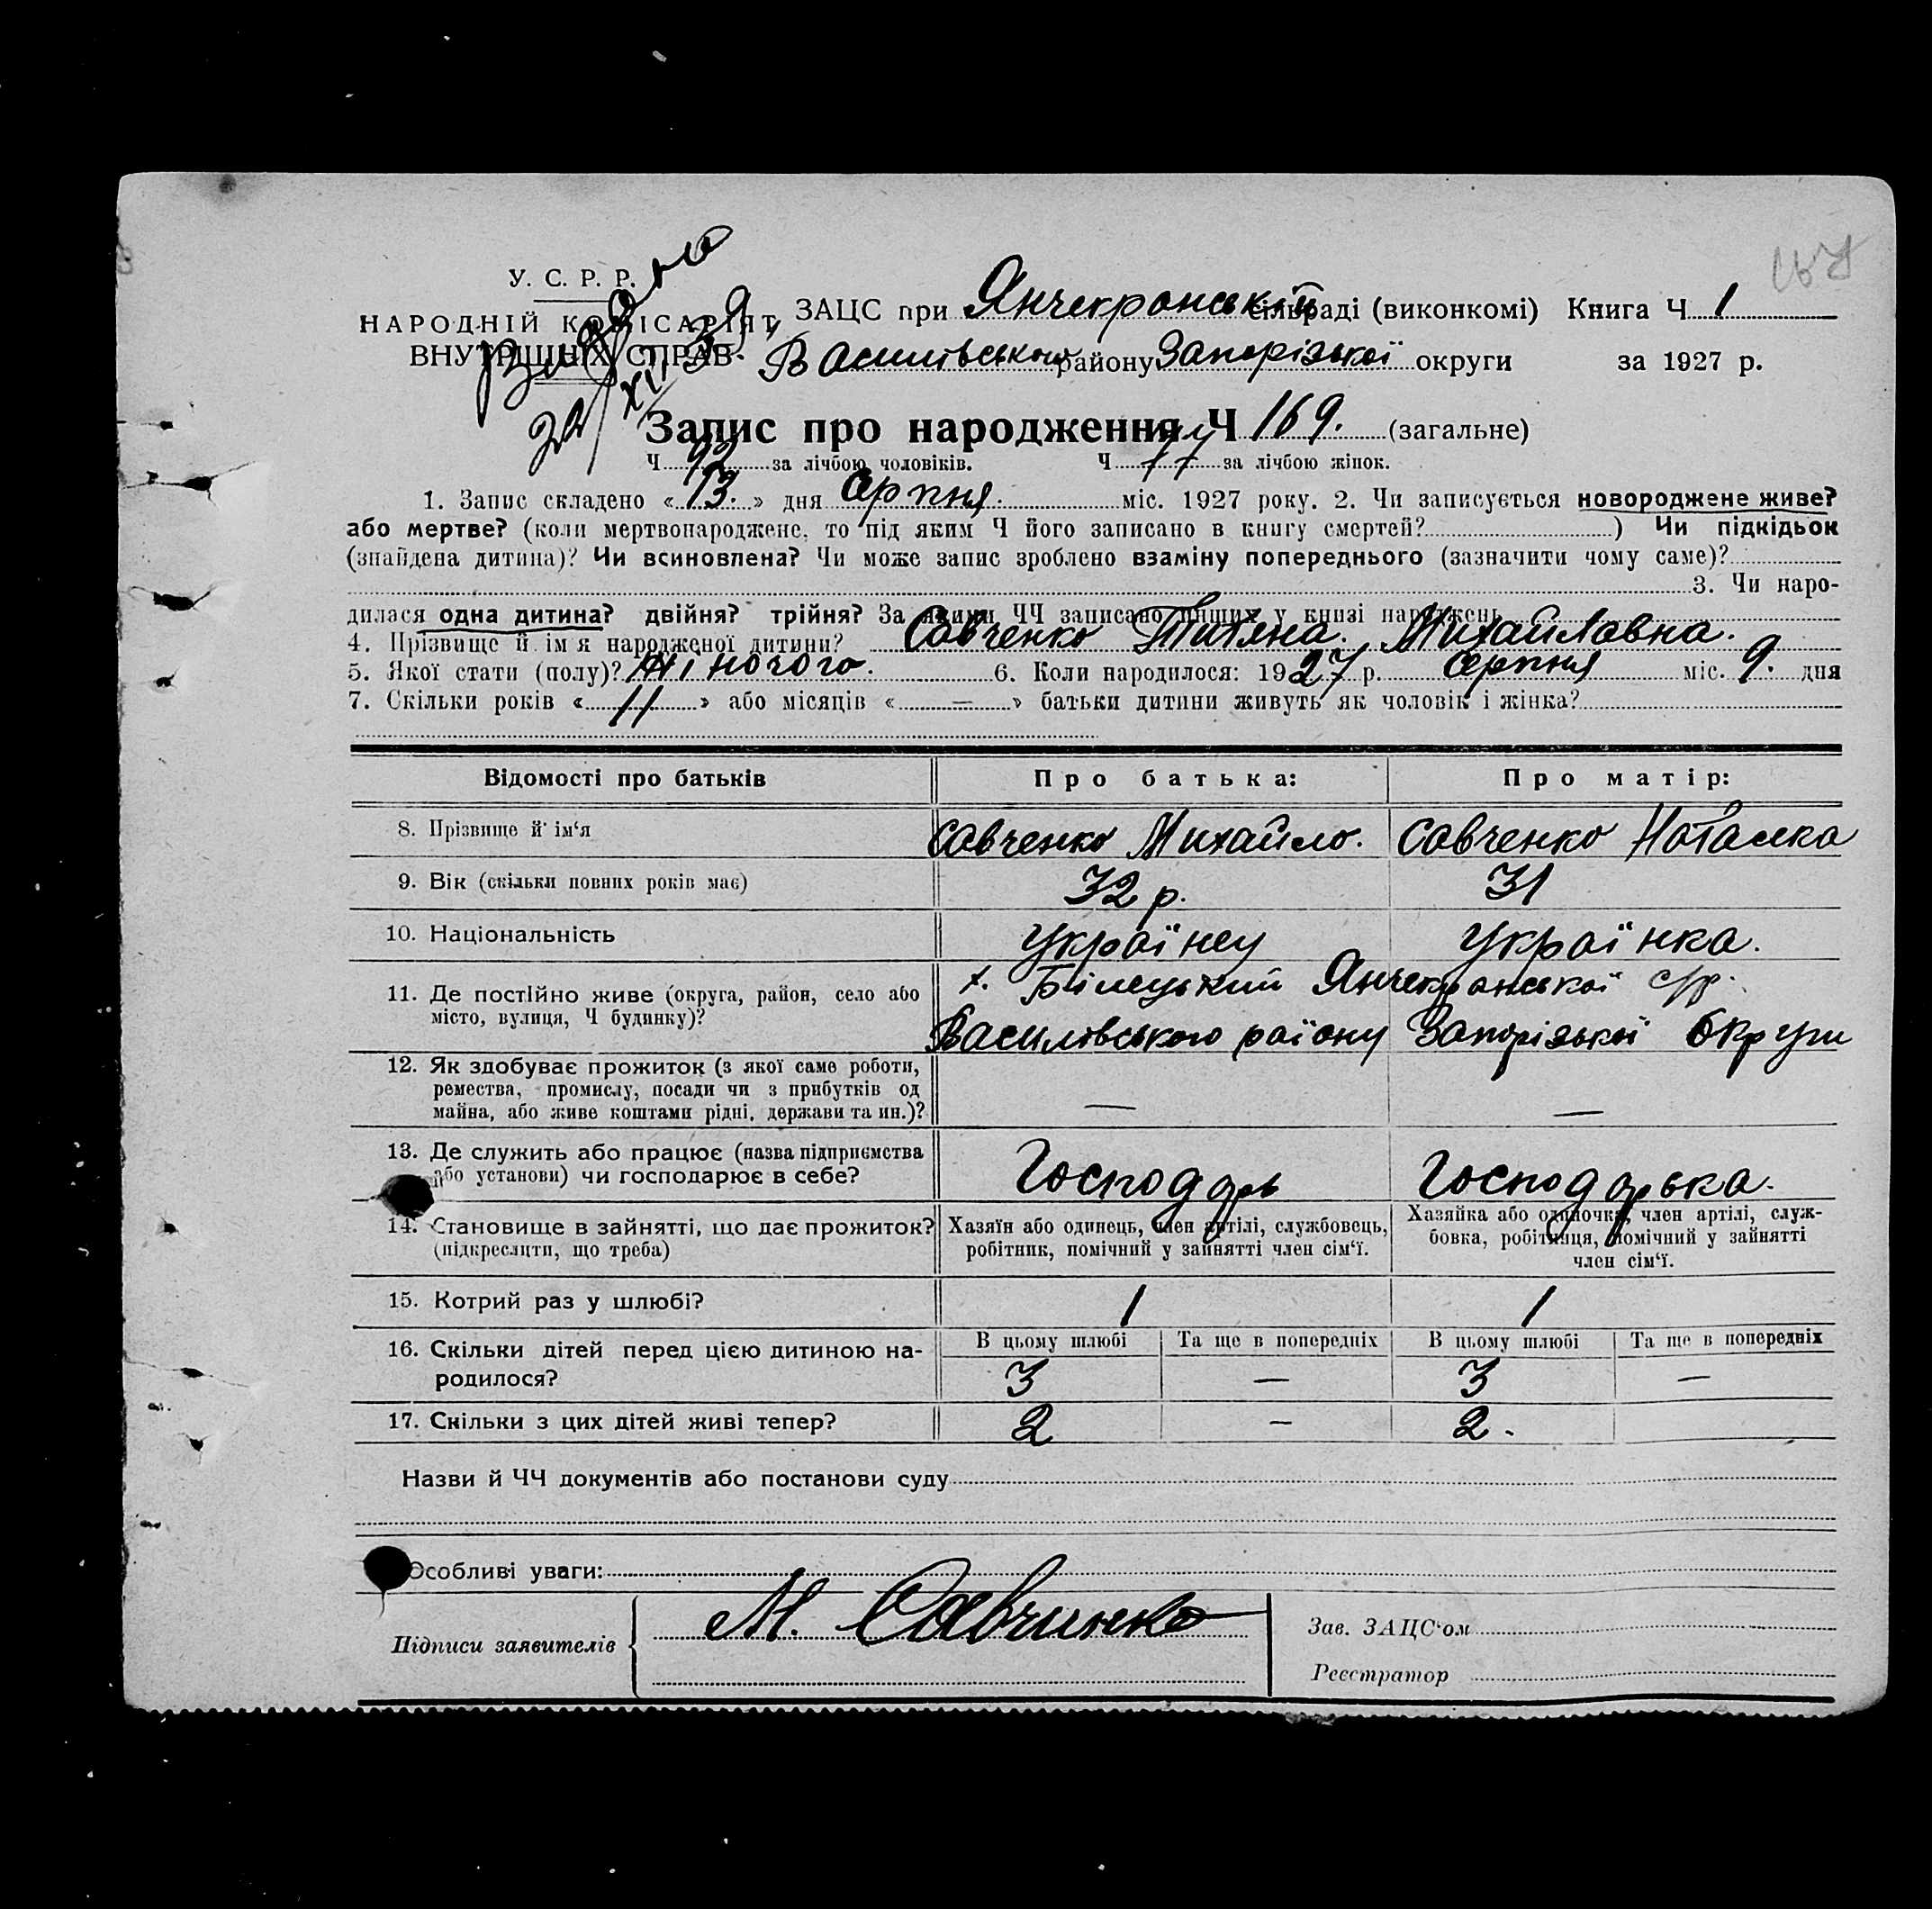 У. С. Р. Р.
НАРОДНІЙ КОМІСАРІЯТ
ВНУТРІШНІХ СПРАВ
Видано
XI 39
ЗАЦС при Янчекронській сільраді (виконкомі) Книга Ч 1
Василівського району Запорізької округи за 1927 р.
Запис про народження Ч 169. (загальне)
Ч 92 за лічбою чоловіків. Ч 77 за лічбою жінок.
1. Запис складено « 13. » дня Серпня. міс. 1927 року. 2. Чи записується новороджене живе?
або мертве? (коли мертвонароджене, то під яким Ч його записано в книгу смертей?) Чи підкідьок
(знайдена дитина)? Чи всиновлена? Чи може запис зроблено взаміну попереднього (зазначити чому саме)?
3. Чи наро-
дилася одна дитина? двійня? трійня? За якими ЧЧ записано инших у книзі народжень
4. Прізвище й ім'я народженої дитини? Савченко Титяна. Михайлавна.
5. Якої стати (полу)? жіночого. 6. Коли народилося: 1927 р. серпня міс. 9. дня
7. Скільки років « 11 » або місяців « — » батьки дитини живуть як чоловік і жінка?
Відомості про батьків Про батька: Про матір:
8. Прізвище й ім'я Савченко Михайло. Савченко Наталка
9. Вік (скільки повних років має) 32 р. 31
10. Національність Українец Українка.
11. Де постійно живе (округа, район, село або х. Білецький Янчекранської с/р.
місто, вулиця, Ч будинку)? Василівського раіону Запорізької Округи
12. Як здобуває прожиток (з якої саме роботи,
ремества, промислу, посади чи з прибутків од
майна, або живе коштами рідні, держави та ин.)? — —
13. Де служить або працює (назва підприємства
або установи) чи господарює в себе? Господарь Господарька.
14. Становище в зайнятті, що дає прожиток? Хазяїн або одинець, член артілі, службовець, Хазяйка або одиночка, член артілі, служ-
(підкреслити, що треба) робітник, помічний у зайнятті член сім'ї. бовка, робітниця, помічний у зайнятті
член сім'ї.
15. Котрий раз у шлюбі? 1 1
В цьому шлюбі Та ще в попередніх В цьому шлюбі Та ще в попередніх
16. Скільки дітей перед цією дитиною на-
родилося? 3 — 3 —
17. Скільки з цих дітей живі тепер? 2 — 2.
Назви й ЧЧ документів або постанови суду
Особливі уваги:
Підписи заявителів М. Савчинко
Зав. ЗАЦС'ом
Реєстратор